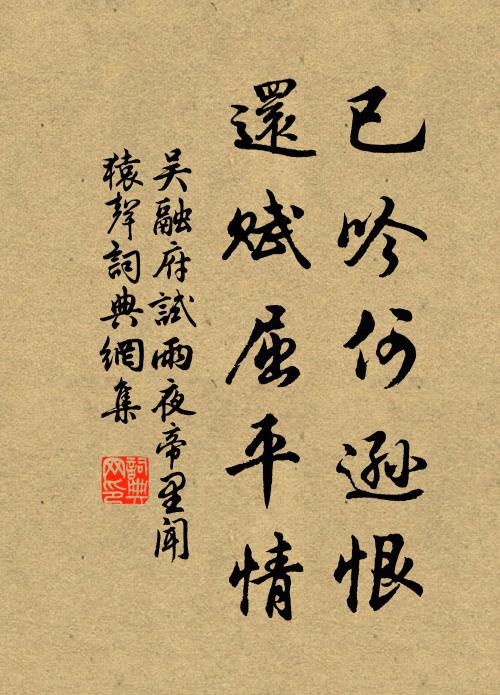 已吟何遜恨
還賦屈平情
吴融府試雨夜帝里聞
猿聲詞典網集
詞典网印